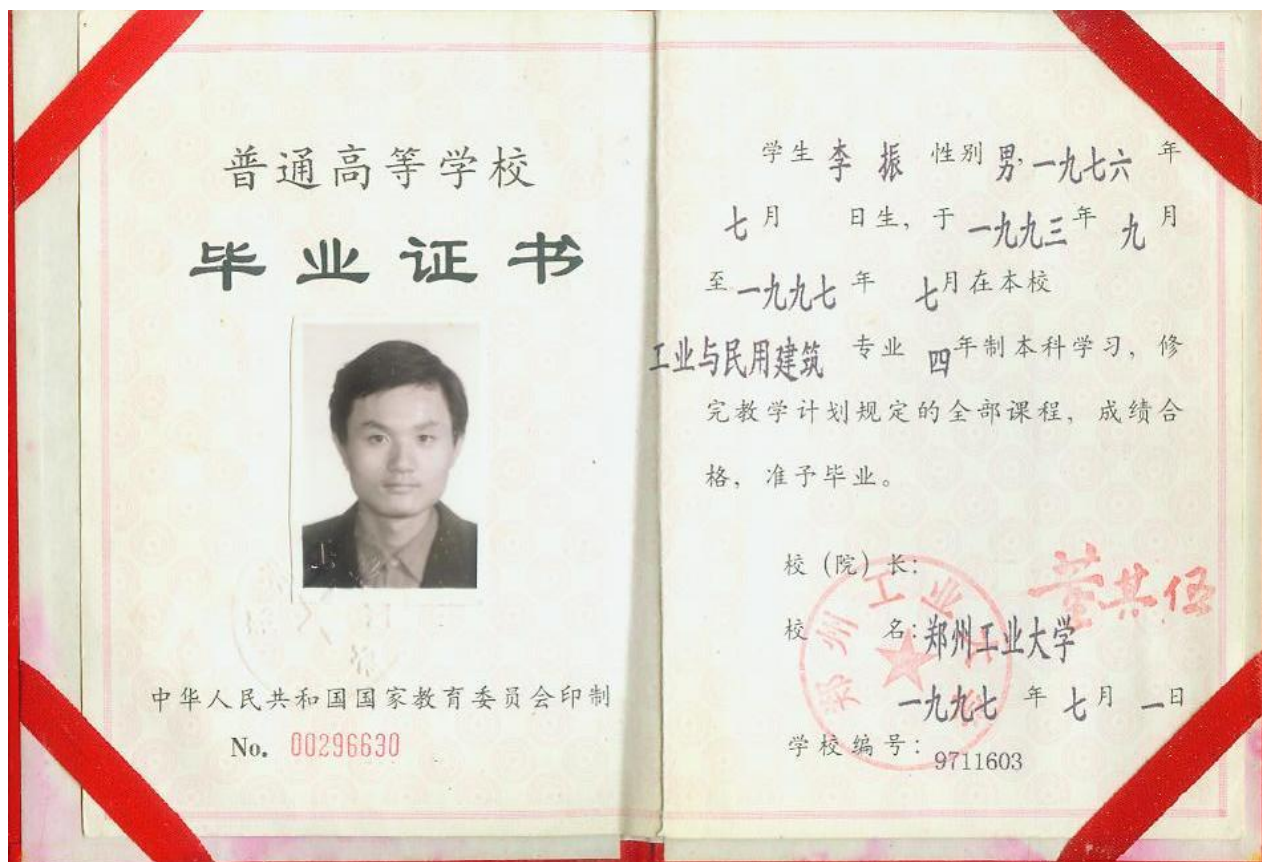 普通高等学校
毕业证书
中华人民共和国国家教育委员会印制
No. 00296630
学生 李振 性别 男, 一九七六 年
七月 日生, 于 一九九三 年 九 月
至 一九九七 年 七月在本校
工业与民用建筑 专业 四年制本科学习, 修
完教学计划规定的全部课程, 成绩合
格, 准予毕业。
校(院)长: 董其伍
校名: 郑州工业大学
一九九七 年 七月 一日
学校编号: 9711603
郑州工业大学